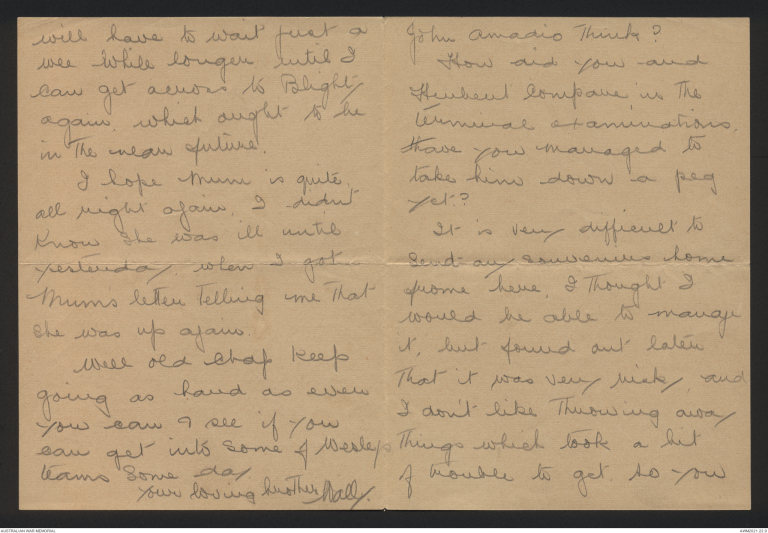 John Amadio Think?
How did you and
Herbert Compare in The
terminal examinations.
Have you managed to
take him down a peg
yet?
It is very difficult to
send any souvenires home
frome here, I Thought I
would be able to manage
it, but found out later
That it was very risky, and
I don't like Throwing away
Things which took a bit
of trouble to get. So you
will have to wait just a
wee while longer until I
can get across to Blighty
again, which ought to be
in The near future.
I hope Mum is quite
all right again. I didn't
know she was ill until
yesterday, when I got
Mums letter Telling me That
she was up again.
Well old chap keep
going as hard as ever
you can & see if you
can get into some of Wesleys
teams Some day.
Your loving brother Wally.
AUSTRALIAN WAR MEMORIAL